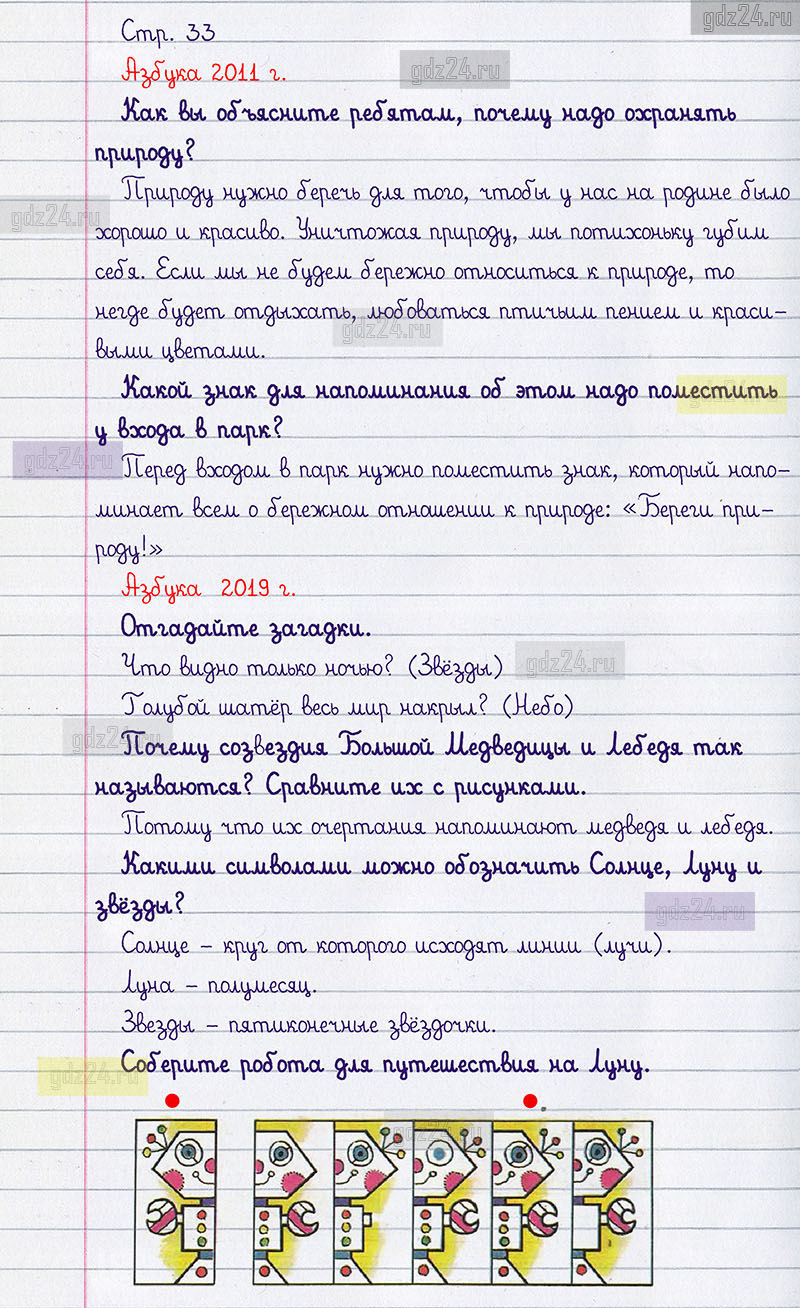 gdz24.ru
Стр. 33
Азбука 2011 г.
gdz24.ru
Как вы объясните ребятам, почему надо охранять
природу?
Природу нужно беречь для того, чтобы у нас на родине было
gdz24.ru
хорошо и красиво. Уничтожая природу, мы потихоньку губим
себя. Если мы не будем бережно относиться к природе, то
негде будет отдыхать, любоваться птичьим пением и краси-
gdz24.ru
выми цветами.
Какой знак для напоминания об этом надо поместить
gdz24.ru
у входа в парк?
gdz24.ru
Перед входом в парк нужно поместить знак, который напо-
минает всем о бережном отношении к природе: «Береги при-
роду!»
Азбука 2019 г.
Отгадайте загадки.
Что видно только ночью? (Звёзды)
gdz24.ru
Голубой шатёр весь мир накрыл? (Небо)
gdz24.ru
Почему созвездия Большой Медведицы и Лебедя так
называются? Сравните их с рисунками.
Потому что их очертания напоминают медведя и лебедя.
Какими символами можно обозначить Солнце, Луну и
звёзды?
gdz24.ru
Солнце – круг от которого исходят линии (лучи).
Луна – полумесяц.
Звезды – пятиконечные звёздочки.
Соберите робота для путешествия на Луну.
gdz24.ru
gdz24.ru